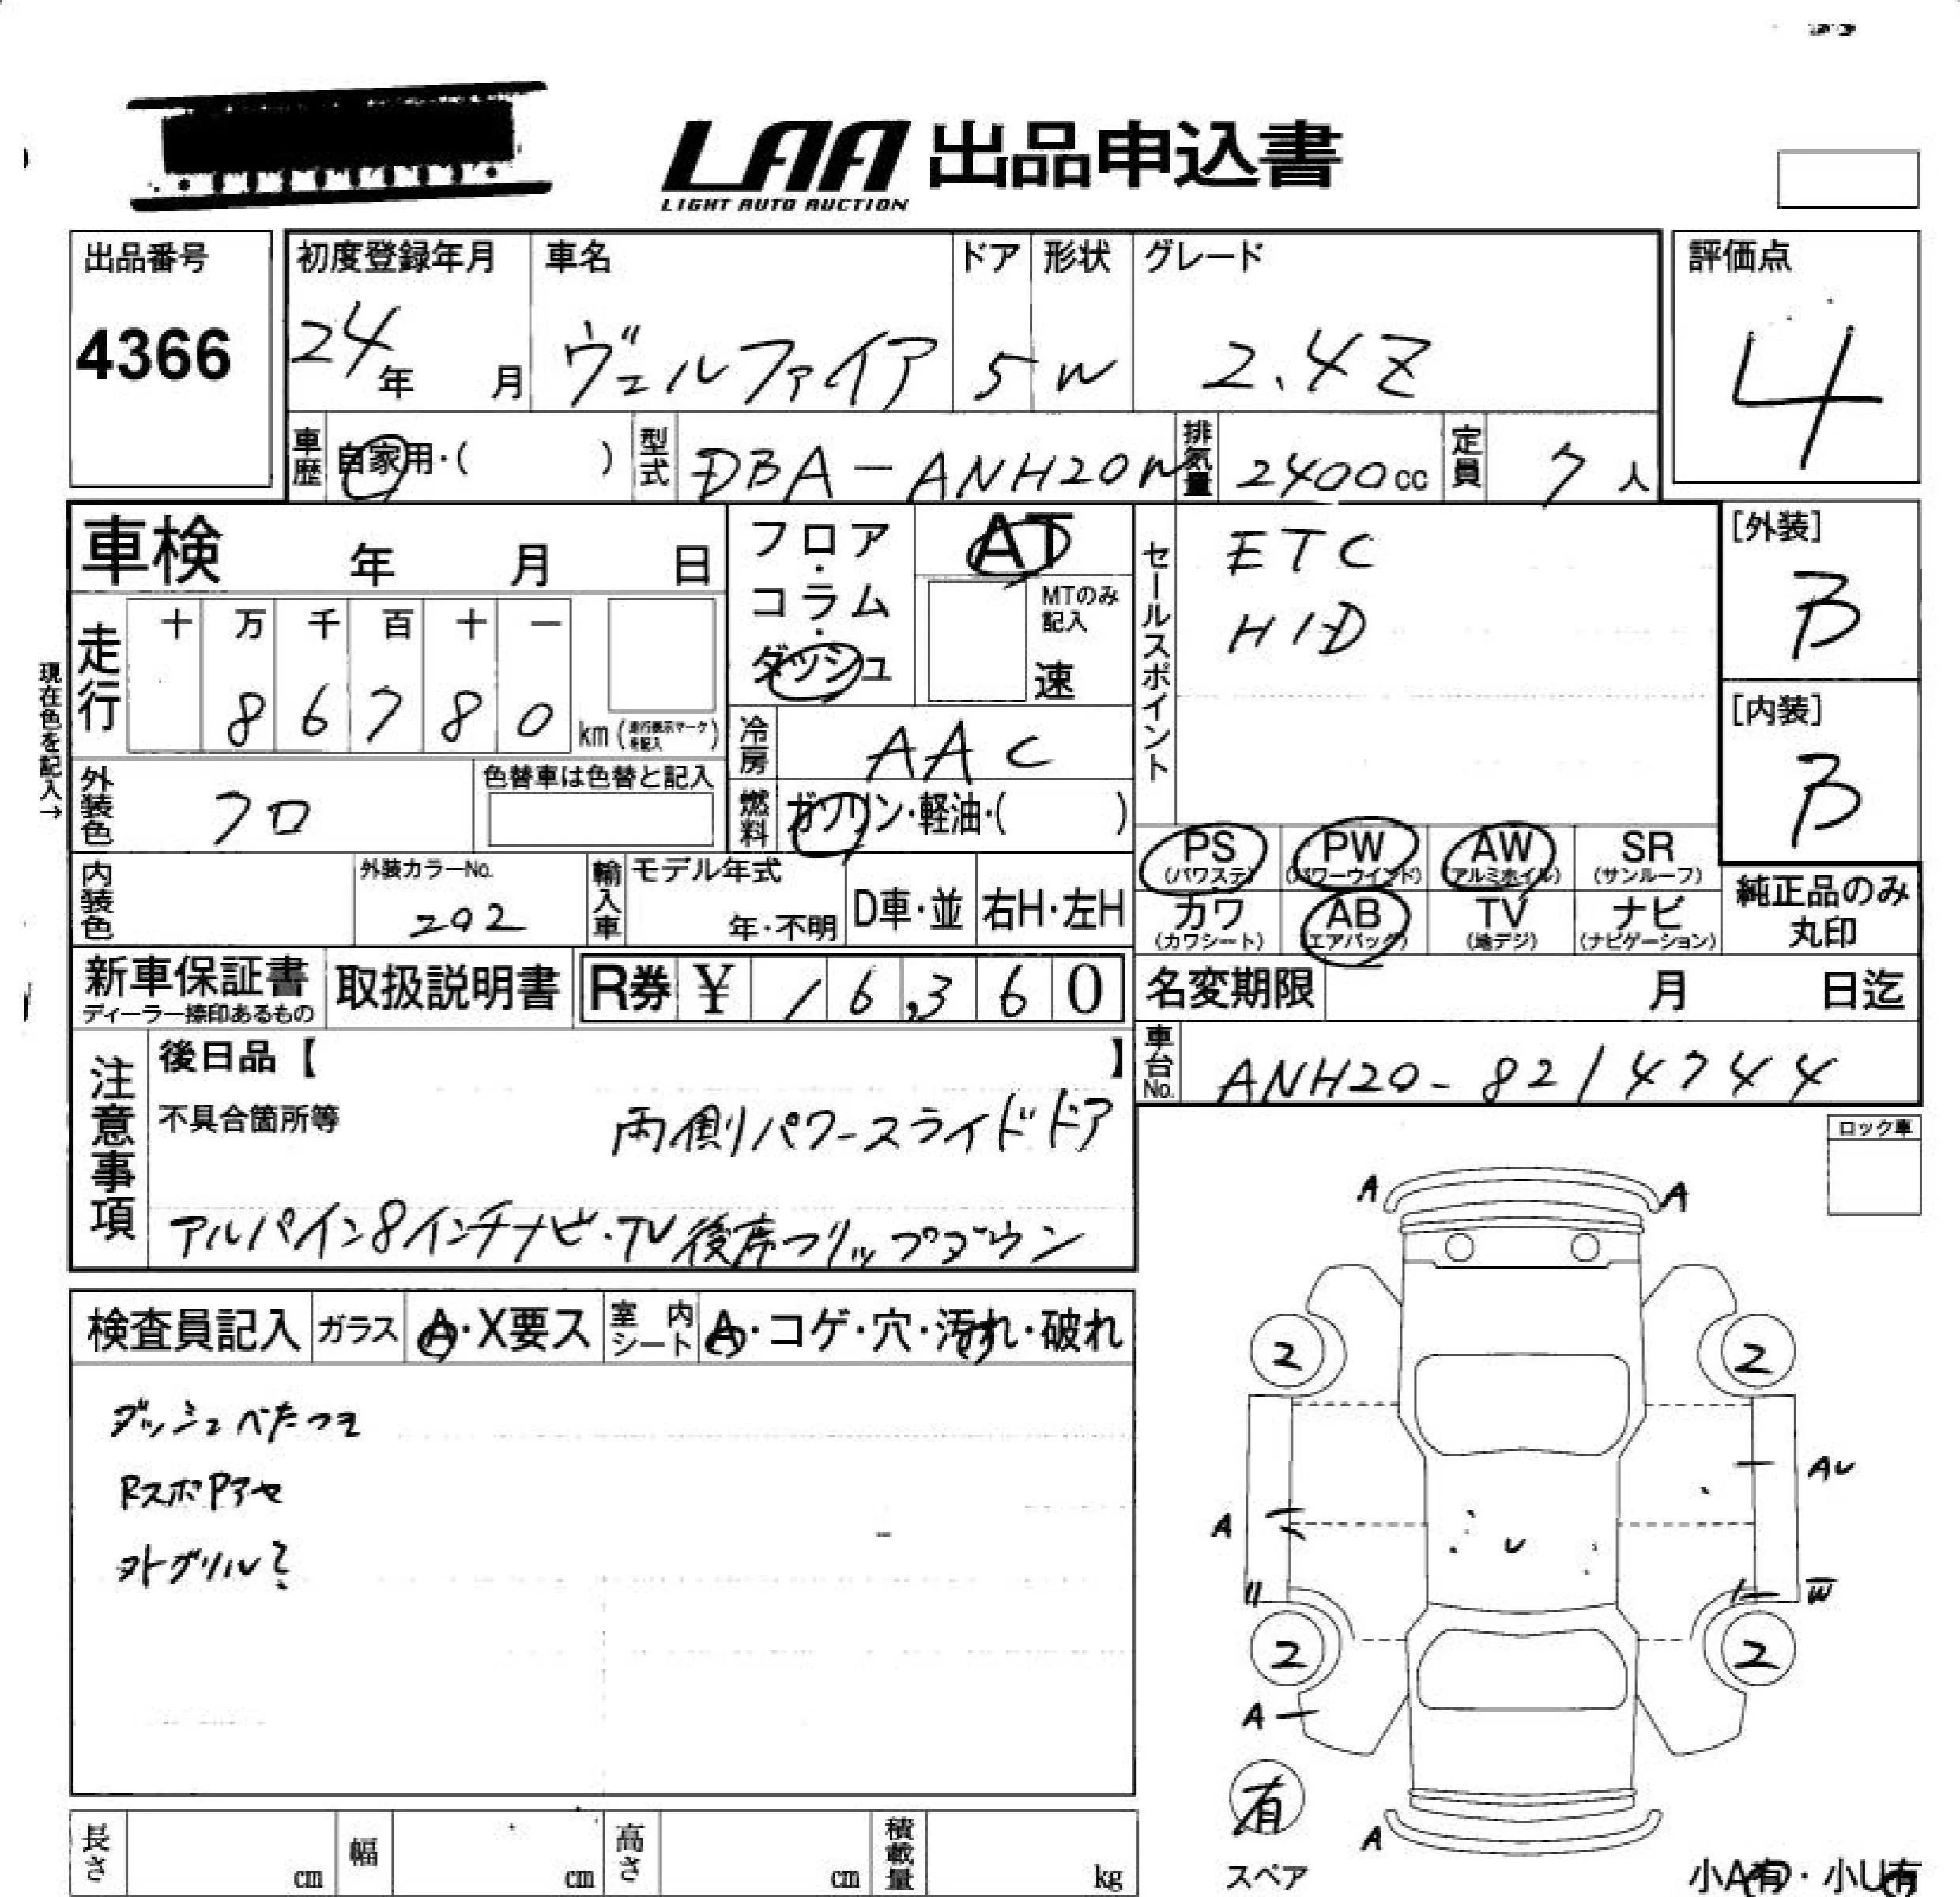 LAA 出品申込書
LIGHT AUTO AUCTION
出品番号
4366
初度登録年月
24年 月
車名
ヴェルファイア
ドア
5
形状
W
グレード
2.4Z
評価点
4
車歴 自家用・( )
型式 DBA-ANH20W
排気量 2400cc
定員 7人
車検 年 月 日
走行
十 万 千 百 十 一
8 6 7 8 0 km (走行表示マークを記入)
現在色を記入→
フロア・コラム・ダッシュ
AT
MTのみ記入
速
冷房 AAC
燃料 ガソリン・軽油・( )
外装色 クロ
色替車は色替と記入
内装色
外装カラーNo.
202
輸入車
モデル年式
年・不明
D車・並
右H・左H
セールスポイント
ETC
HID
[外装]
B
[内装]
B
PS (パワステ)
PW (パワーウインド)
AW (アルミホイル)
SR (サンルーフ)
カワ (カワシート)
AB (エアバック)
TV (地デジ)
ナビ (ナビゲーション)
純正品のみ丸印
新車保証書
ディーラー捺印あるもの
取扱説明書
R券 ¥ 16,360
名変期限 月 日迄
車台No. ANH20-8214744
注意事項
後日品【 】
不具合箇所等
両側パワースライドドア
アルパイン8インチナビ・TV後席フリップダウン
検査員記入
ガラス A・X要ス
室内シート A・コゲ・穴・汚れ・破れ
ダッシュべたつき
RスポPアセ
外グリル?
ロック車
A A
2 2
AU
A
U
W
2 2
A
有
スペア
A
小A有・小U有
長さ cm
幅 cm
高さ cm
積載量 kg